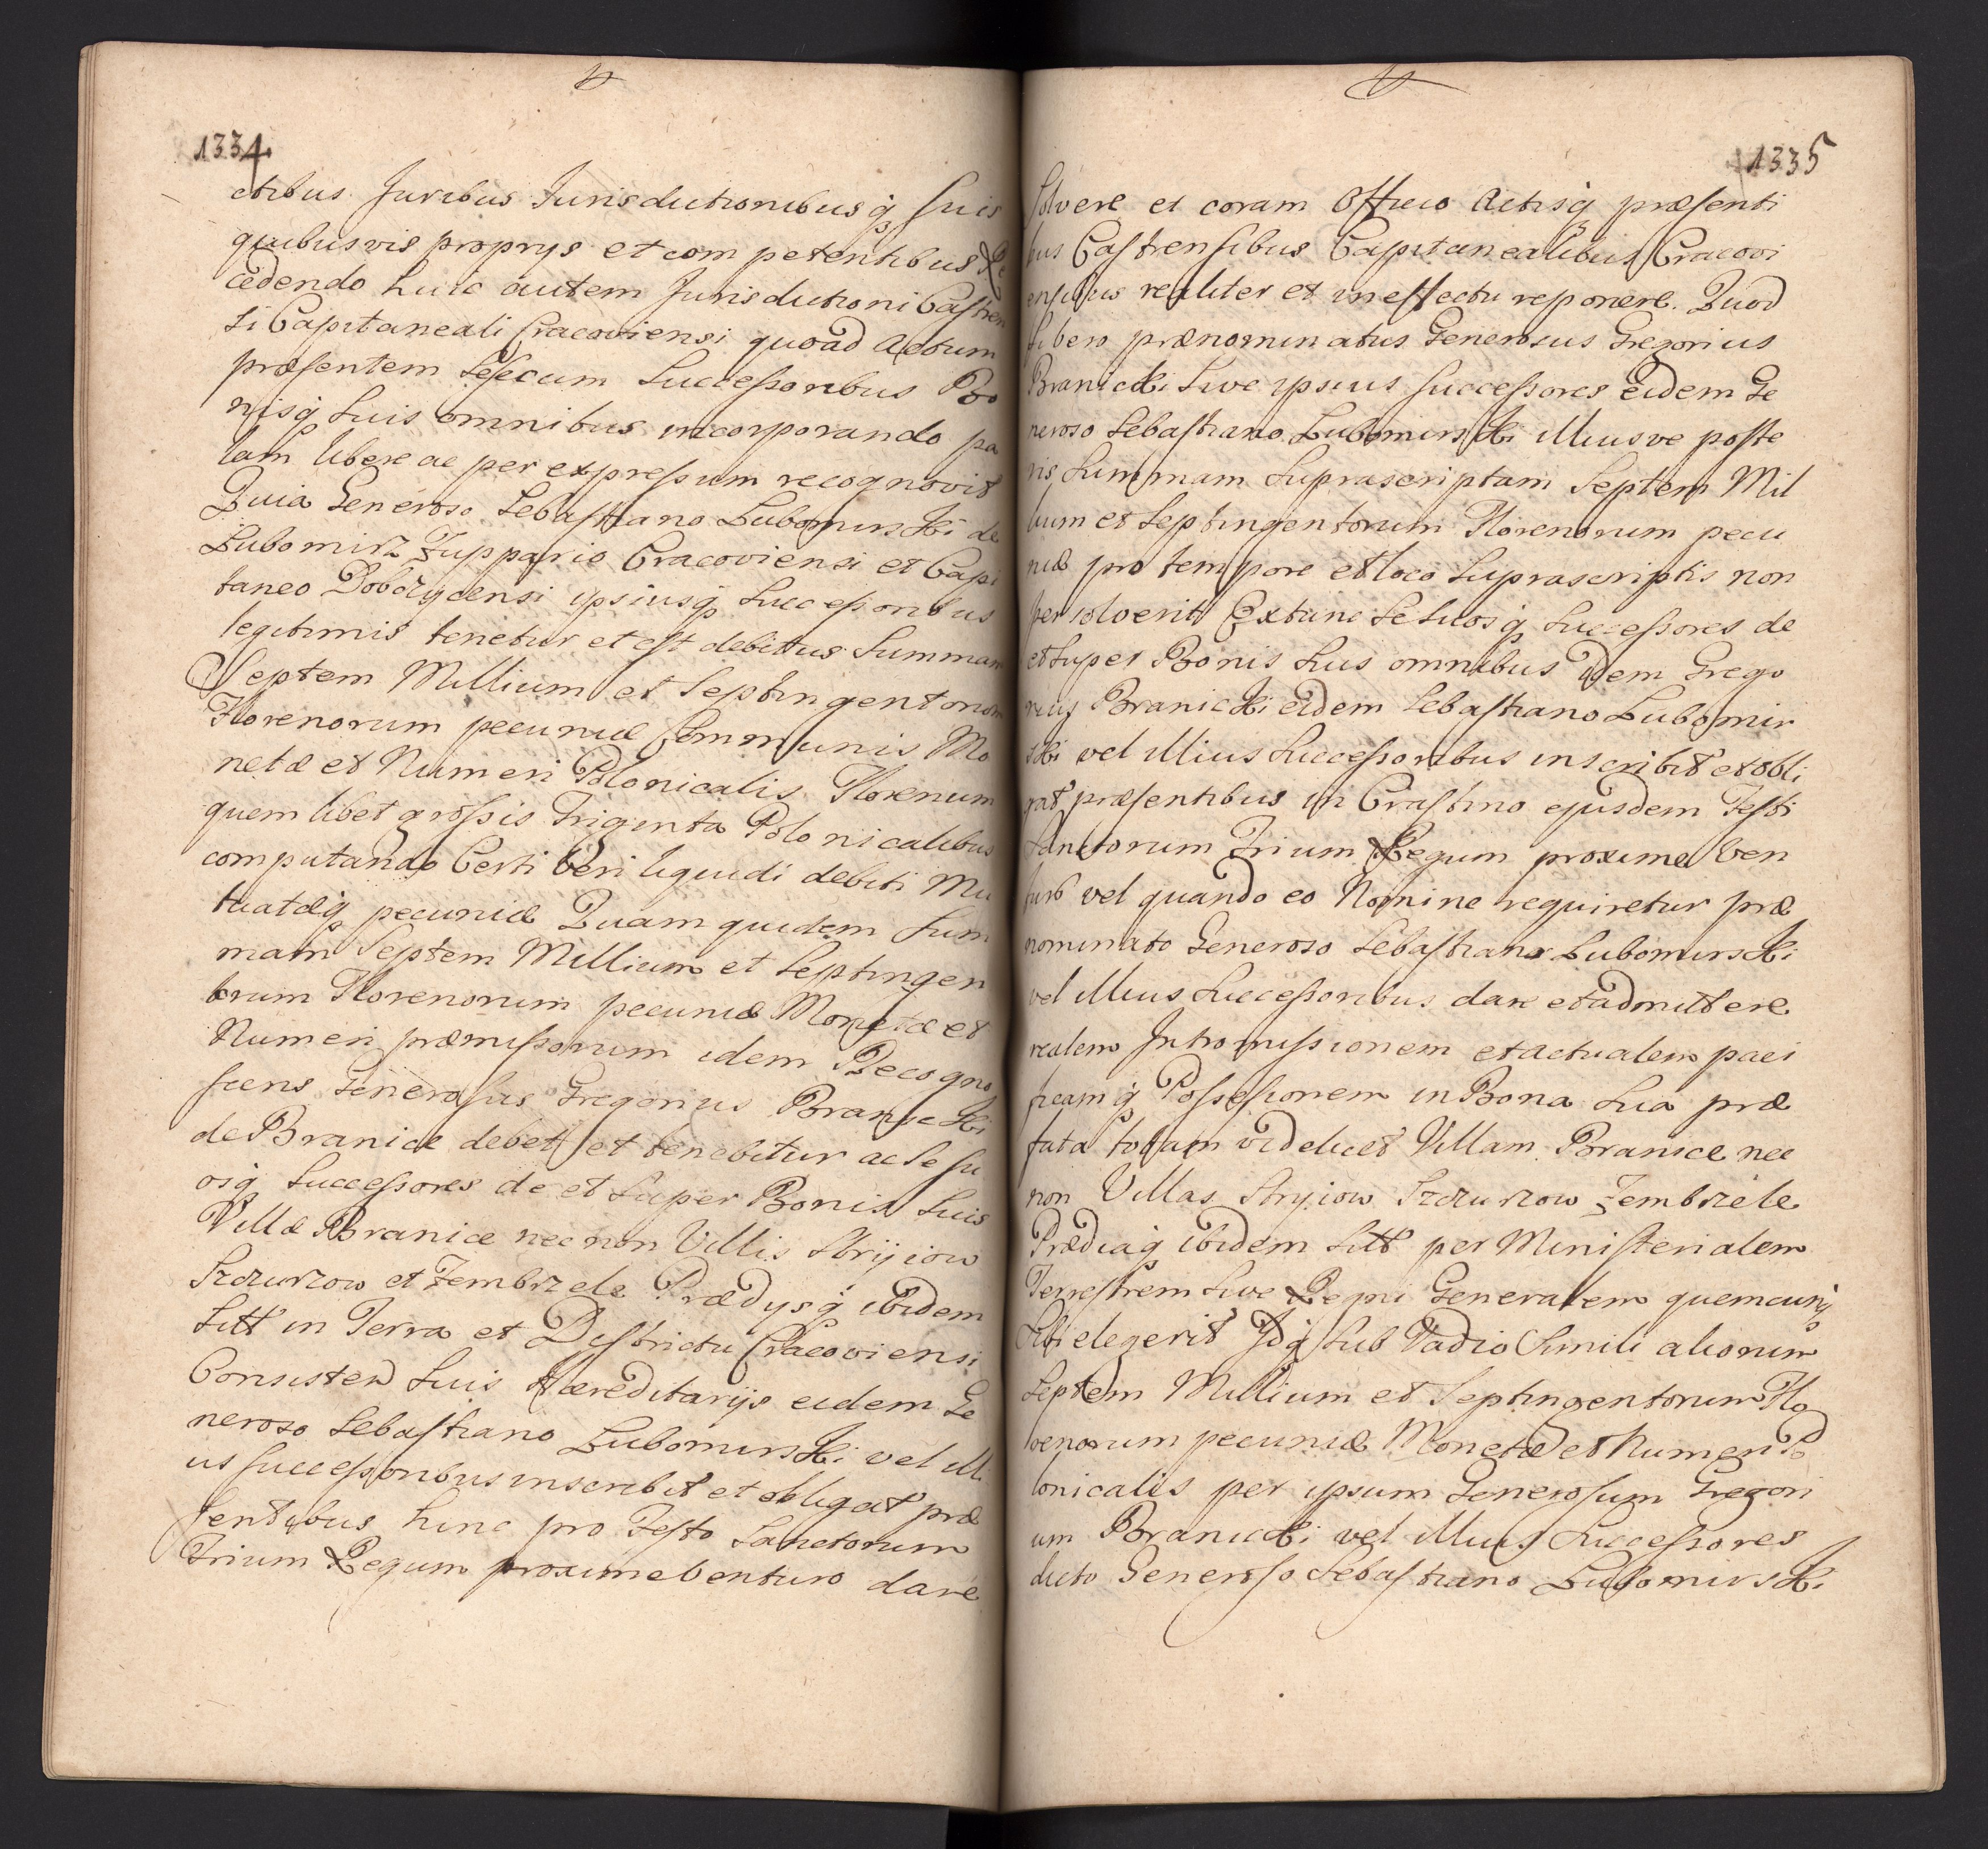 1334
ctibus Juribus Jurisdictionibusq́ suis
quibusvis proprys et competentibus Re
cedendo huic autem Jurisdictioni Castren
si Capitaneali Cracoviensi quoad Actum
præsentem sesecum Successoribus Bo
nisq́ suis omnibus incorporando pa
lam libere ac per expressum recognovit
Quia Generoso Sebastiano Lubomirski de
Lubomirz Zuppario Cracoviensi et Capi
taneo Dobczycensi ipsiusq́ Successoribus
legitimis tenetur et est debittus Summam
Septem Millium et Septingentorum
Florenorum pecuniæ Communis Mo
netæ et Numeri Polonicalis Florenum
quemlibet grossis Triginta Polonicalibus
computando Certi Veri liquidi debiti Mu
tuatæq́ pecuniæ Quam quidem Sum
mam Septem Millium et Septingen
torum Florenorum pecuniæ Monetæ et
Numeri præmissorum idem Recogno
scens Generosus Gregorius Branicki
de Branice debet et tenebitur ac se su
osq́ Successores de et super Bonis suis
Villæ Branice nec non Villis Stryiow
Szczurzow et Zembrzele Prædysq́ ibidem
Sitt in Terra et Districtu Cracoviensi
Consisten suis Hæreditarijs eidem Ge
neroso Sebastiano Lubomirski vel illi
us successoribus inscribit et obligat præ
sentibus hinc pro Festo Sanctorum
Trium Regum proxime Venturo dare
1335
solvere et coram Officio Actisq́ præsenti
bus Castrensibus Capitanealibus Cracovi
ensibus realiter et in effectu reponere. Quod
si vero prænominatus Generosus Gregorius
Branicki sive ipsius successores eidem Ge
neroso Sebastiano Lubomirski illiusve poste
ris Summam suprascriptam Septem Mil
lium et Septingentorum Florenorum pecu
niæ pro tempore et loco suprascriptis non
persolverit Extunc se suosq́ Successores de
et super Bonis suis omnibus idem Grego
rius Branicki eidem Sebastiano Lubomir
ski vel illius Successoribus inscribit et obli
gat præsentibus in Crastino ejusdem Festi
Sanctorum Trium Regum proxime Ven
turo vel quando eo Nomine requiretur præ
nominato Generoso Sebastiano Lubomirski
vel illius Successoribus dare et admittere
realem Intromissionem et actualem paci
ficamq́ Possessionem in Bona sua præ
fata totam videlicet Villam Branice nec
non Villas Stryiow Szczurzow Zembrzele
Prædiaq́ ibidem Sitt per Ministerialem
Terrestrem sive Regni Generalem quemcunq́
Sibi elegerit Idq́ sub Vadio Simili aliorum
Septem Millium et Septingentorum Flo
renorum pecuniæ Monetæ et Numeri Po
lonicalis per ipsum Generosum Gregori
um Branicki vel illius Successores
dicto Generoso Sebastiano Lubomirski